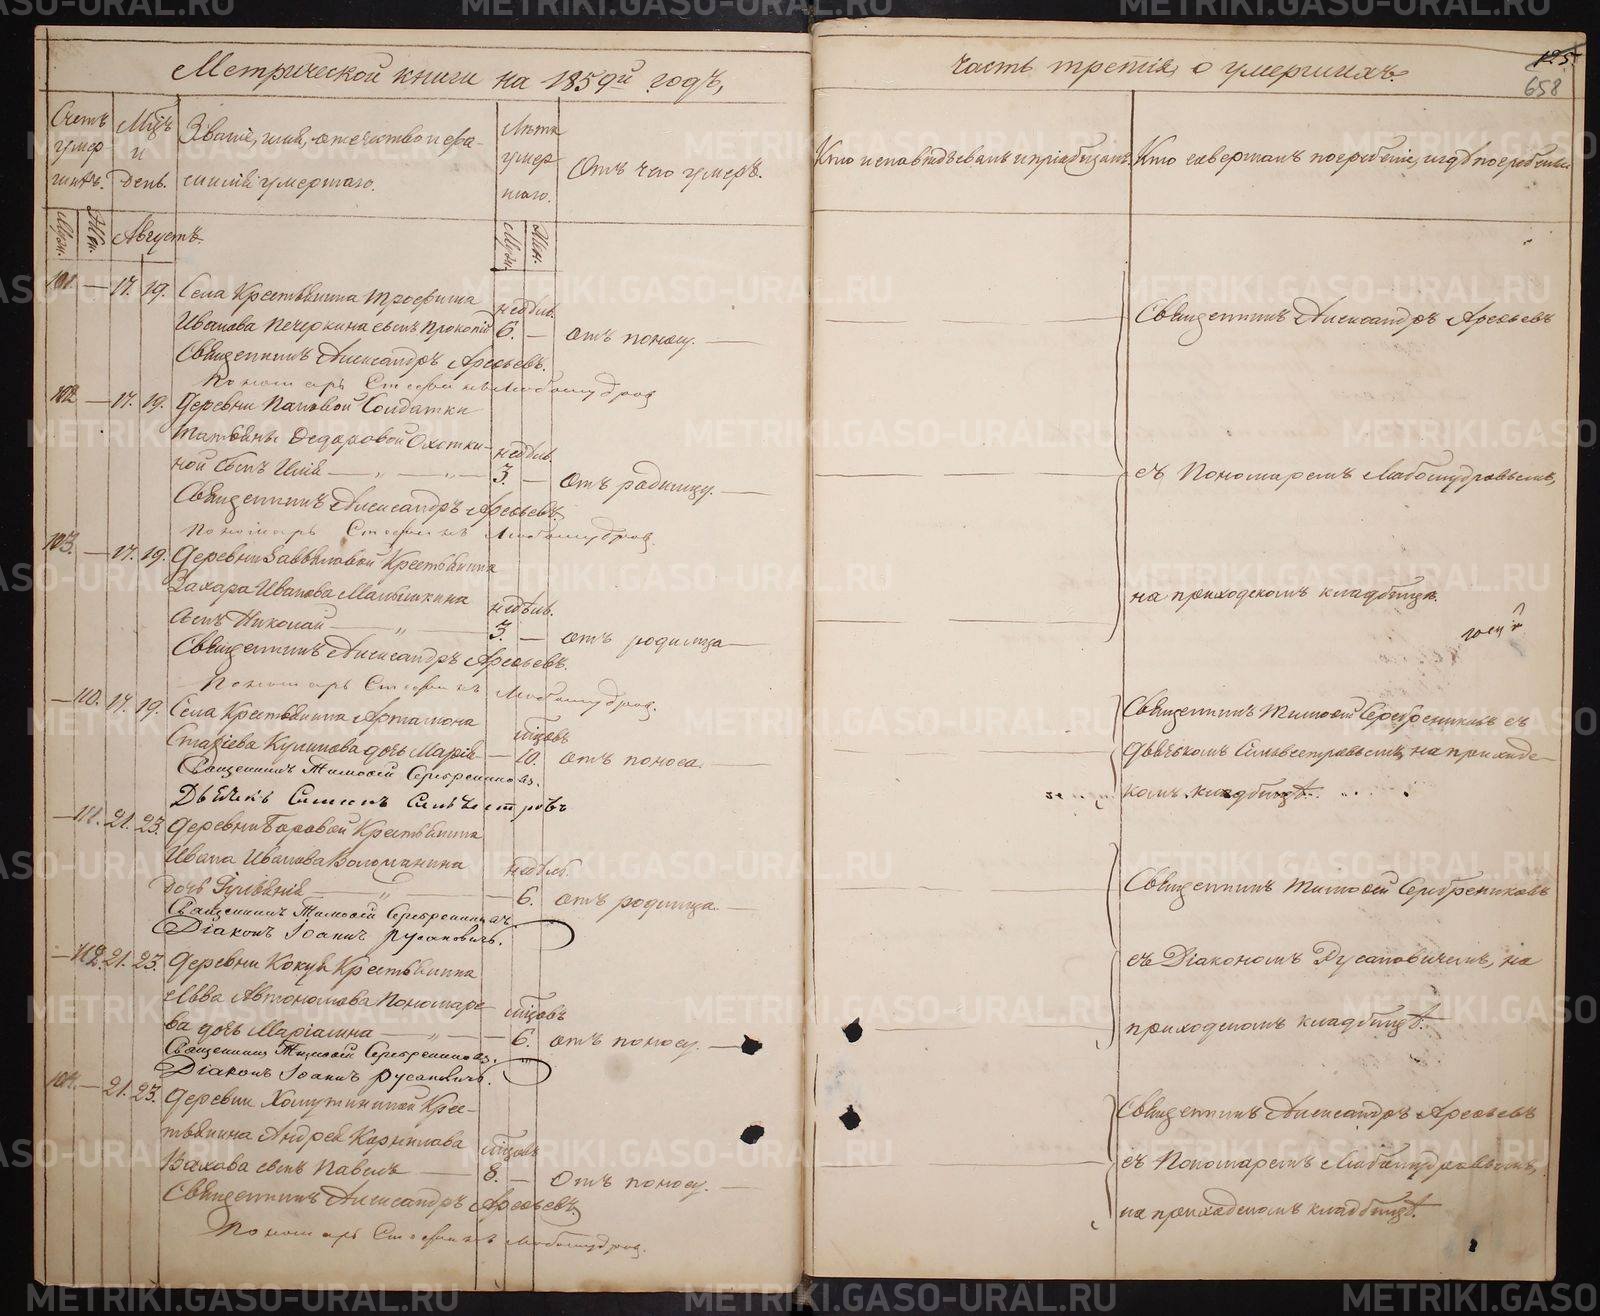 Метрической книги на 1859й годъ,
Счетъ умершихъ.
Мцъ и день.
Званіе, имя, отечество и фамилія умершаго.
Лѣта умершаго.
Отъ чего умеръ.
Муж.
Жен.
Августъ.
Муж.
Жен.
101. — 17. 19. Села Крестьянина Трофима
Иванова Печеркина сынъ Прокопій
недѣль 6. — отъ поносу.
Священникъ Александръ
Пономарь Стефанъ Любомудровъ
102 — 17. 19. Деревни Пановой Солдатки
Татьяны Федоровой Охотки-
ной сынъ Илія
недѣль 3. — отъ родимцу.
Священникъ Александръ
Пономарь Стефанъ Любомудровъ
103. — 17. 19. Деревни Завьяловой Крестьянина
Захара Иванова Малышкина
сынъ Николай
недѣль 3. — отъ родимца
Священникъ Александръ
Пономарь Стефанъ Любомудровъ
— 110. 17. 19. Села Крестьянина Артамона
дочь Марія
мѣсцовъ — 10. отъ поноса.
Священникъ Тимофей Серебренниковъ.
Дьячекъ Симеонъ Сильвестровъ
— 111. 21. 23. Деревни Боровой Крестьянина
Ивана Иванова
дочь
недѣль — 6. отъ родимца.
Священникъ Тимофей Серебренниковъ
Діаконъ Іоаннъ Русановичъ.
— 112. 21. 23. Деревни Кокуя Крестьянина
Льва Автономова Пономаре-
ва дочь Маріамна
мѣсцовъ — 6. отъ поносу.
Священникъ Тимофей Серебренниковъ.
Діаконъ Іоаннъ Русановичъ.
104. — 21. 23. Деревни Хомутининой Крес-
тьянина Андрея Корнилова
Вахова сынъ Павелъ
мѣсцовъ 8. — отъ поносу.
Священникъ Александръ
Пономарь Стефанъ Любомудровъ.
часть третія, о умершихъ.
125.
658
Кто исповѣдывалъ и пріобщалъ.
Кто совершалъ погребеніе, и гдѣ погребены.
Священникъ Александръ
съ Пономаремъ Любомудровымъ,
на приходскомъ кладбищѣ.
Священникъ Тимофей Серебренниковъ съ
дьячкомъ Сильвестровымъ, на приход-
скомъ кладбищѣ.
Священникъ Тимофей Серебренниковъ
съ Діакономъ Русановичемъ, на
приходскомъ кладбищѣ.
Священникъ Александръ
съ Пономаремъ Любомудровымъ,
на приходскомъ кладбищѣ.
METRIKI.GASO-URAL.RU